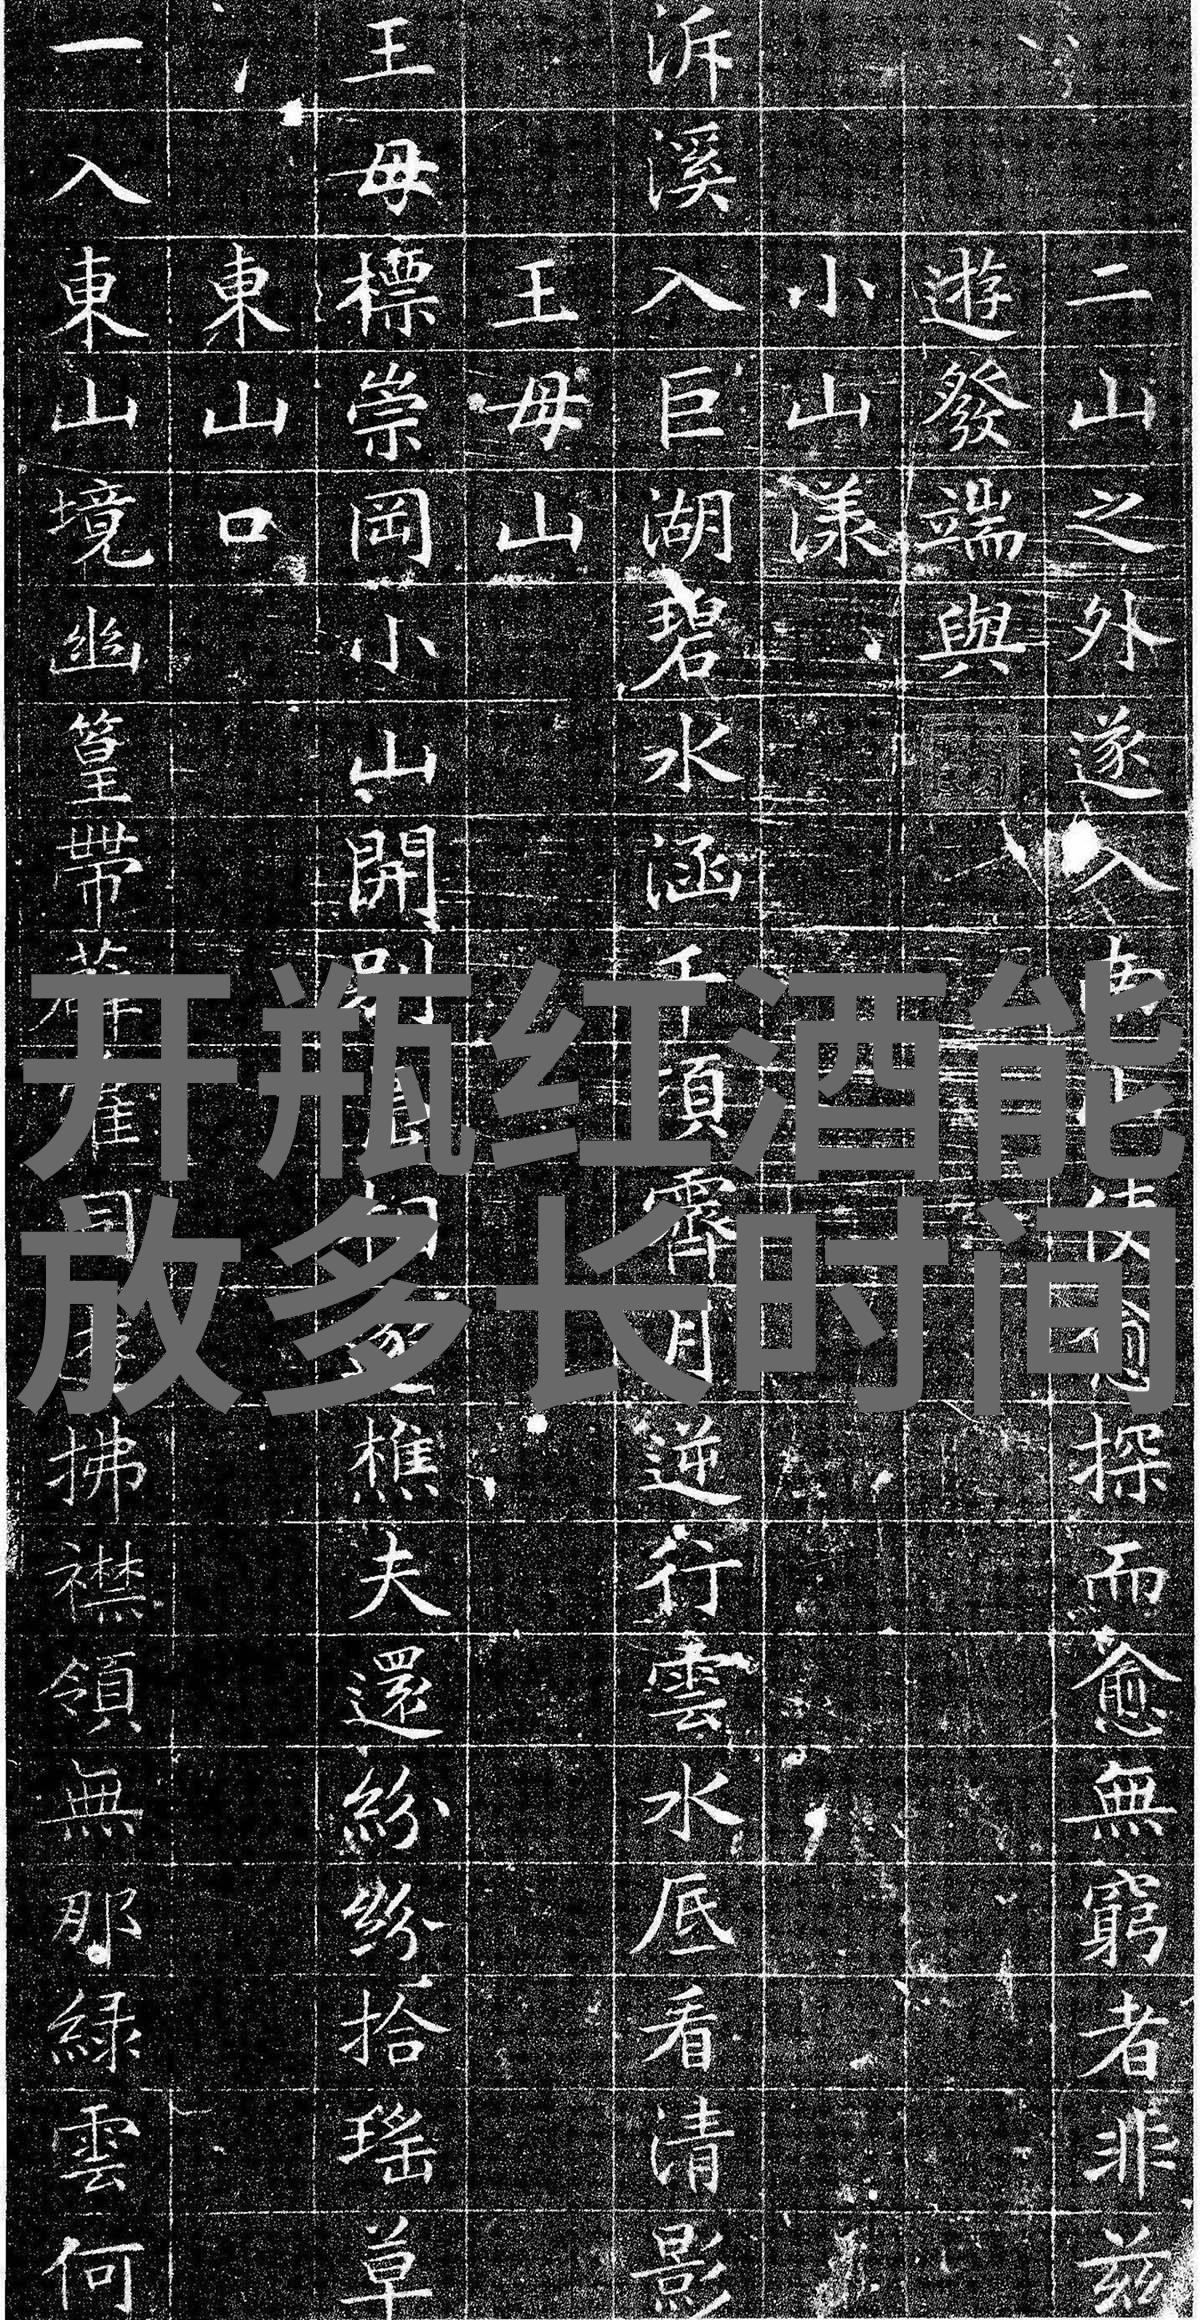 二山之外遂入南山使愈探而愈無窮者非茲
遊發端與
小山漾
泝溪入巨湖碧水涵千頃霽月逆行雲水底看清影
王母山
王母標崇岡小山開別樵夫還紛紛拾瑤草
東山口
一入東山境幽篁帶拂襟領無那綠雲何
开瓶红酒能
放多长时间